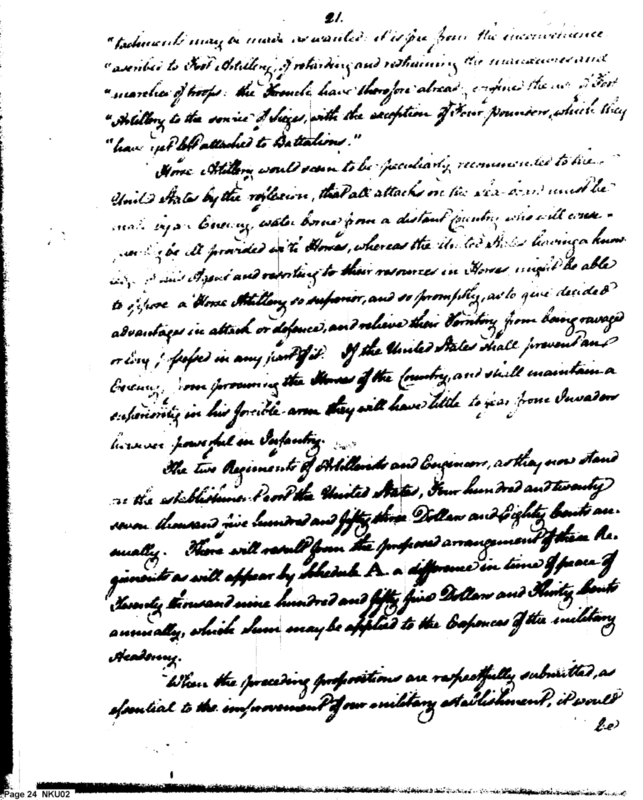 21.
"tachments may be made as wanted: it is free from the inconvenience
"ascribed to Foot Artillery, of retarding and restraining the manœuvres and
"marches of troops: the French have therefore already confined the use of Foot
"Artillery to the service of Sieges, with the exception of Four pounders, which they
"have yet left attached to Battalions."
Horse Artillery would seem to be peculiarly recommended to the
United States by the reflexion, that all attacks on the Sea board must be
made by an Enemy, water borne from a distant Country who will conse-
quently be ill provided with Horses, whereas the United States having a know-
ledge of this Agent and resorting to their resources in Horses might be able
to oppose a Horse Artillery so superior, and so promptly, as to give decided
advantages in attack or defence, and relieve their Territory from being ravaged
or long possessed in any part of it. If the United States shall prevent an
Enemy from procuring the Horses of the Country, and shall maintain a
superiority in his forcible arm they will have little to fear from Invaders
however powerful in Infantry.
The two Regiments of Artillerists and Engineers, as they now stand
on the establishment cost the United States, Four hundred and twenty
seven thousand five hundred and fifty three Dollars and Eighty Cents an-
nually. There will result from the proposed arrangement of these Re-
giments as will appear by Schedule A. a difference in time of peace of
Twenty thousand nine hundred and fifty five Dollars and Thirty Cents
annually, which Sum may be applied to the Expences of the military
Academy.
When the preceding propositions are respectfully submitted, as
essential to the improvement of our military establishment, it would
be
Page 24 NKU02